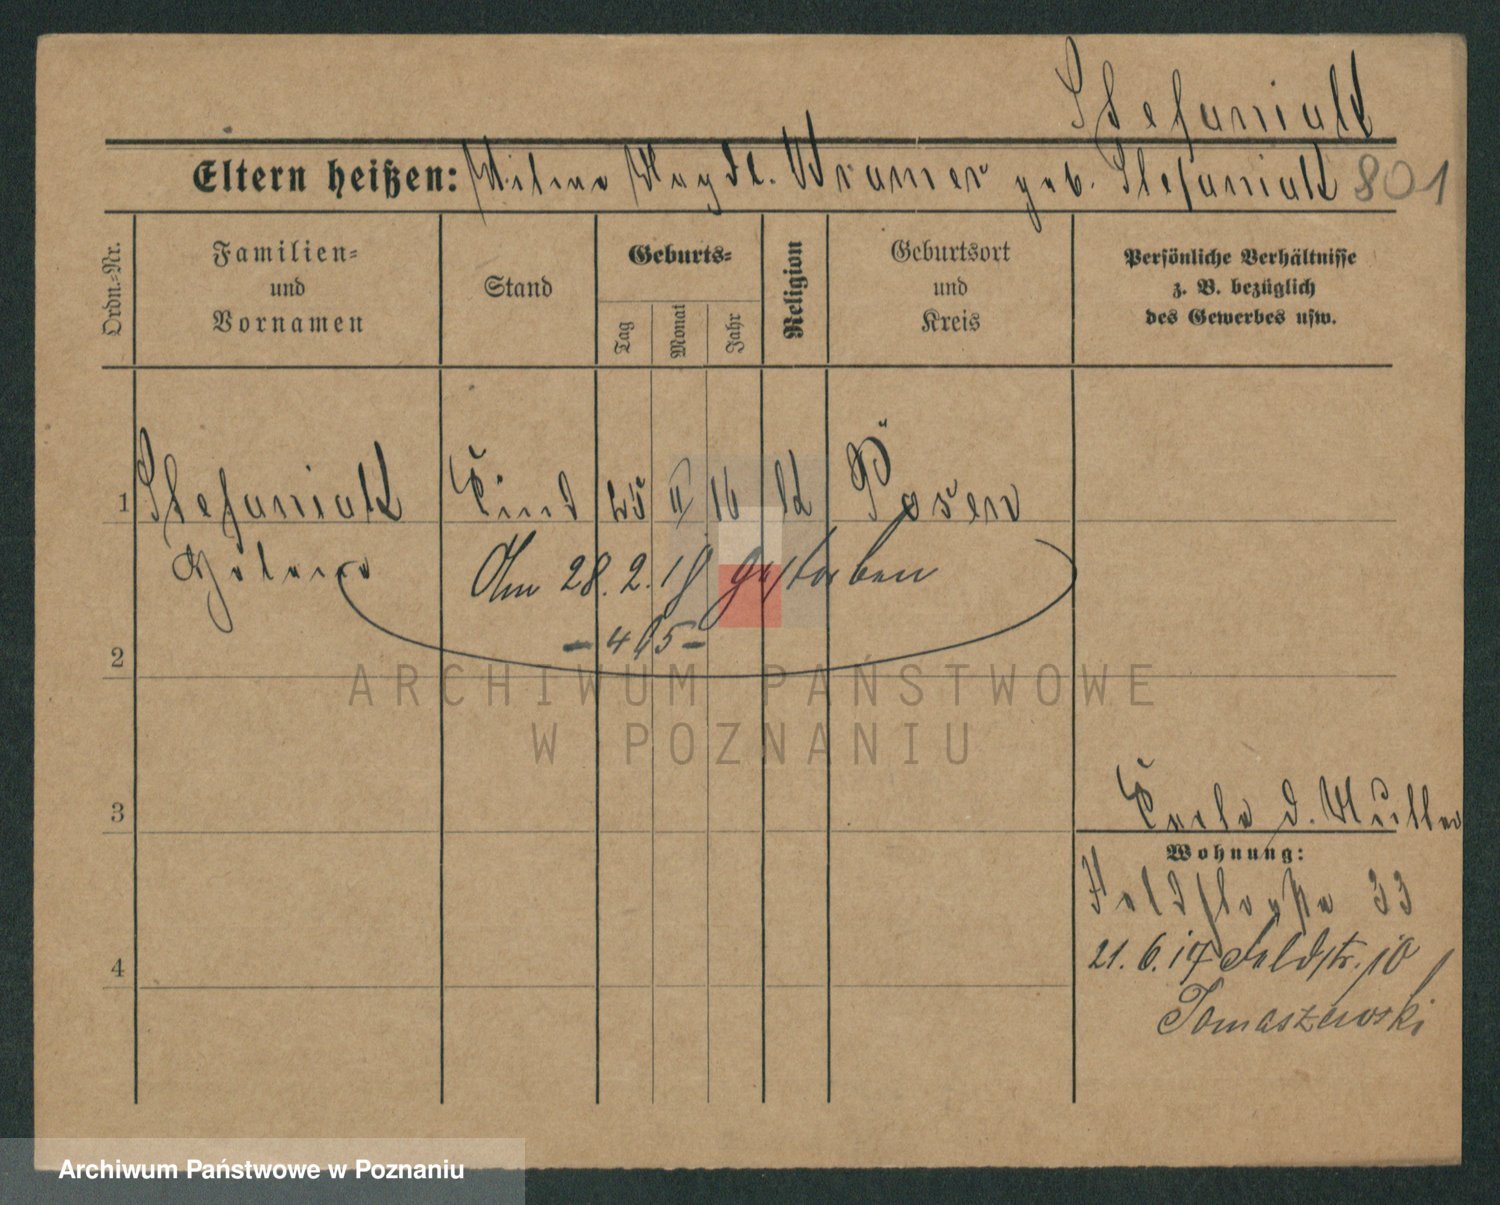 Stefaniak
Eltern heißen: Witwe Magd. Wramer geb. Stefaniak 801
Ordn.-Nr.
Familien-
und
Vornamen
Stand
Geburts-
Tag
Monat
Jahr
Religion
Geburtsort
und
Kreis
Persönliche Verhältnisse
z. B. bezüglich
des Gewerbes usw.
1 Stefaniak Kind 25 II 16 kt Posen
Helene Am 28.2.18 gestorben
- 465 -
2
ARCHIWUM PAŃSTWOWE
W POZNANIU
3
Karte d. Mutter
Wohnung:
Feldstraße 33
4
21.6.17 Feldstr. 10
Tomaszewski
Archiwum Państwowe w Poznaniu